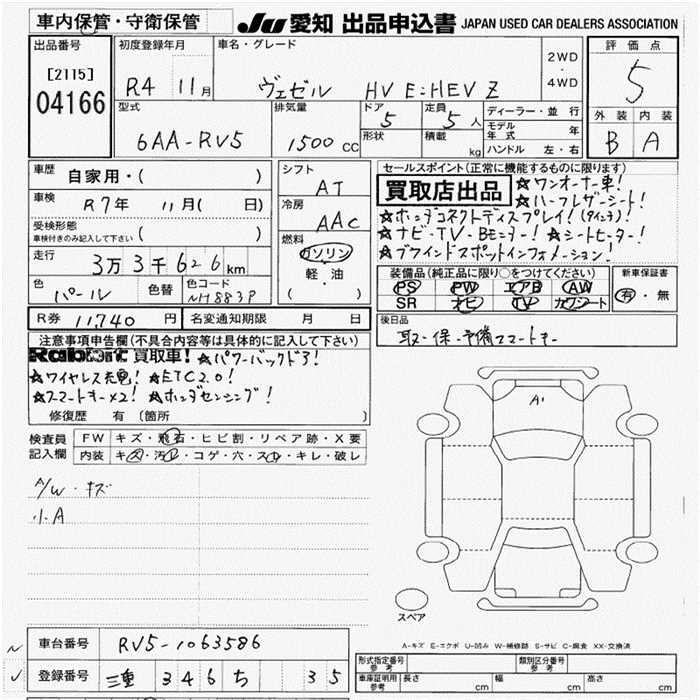 車内保管・守衛保管
JU 愛知 出品申込書 JAPAN USED CAR DEALERS ASSOCIATION
出品番号
[2115]
04166
初度登録年月
R4 11月
車名・グレード
ヴェゼル HV E:HEV Z
2WD
・
4WD
評価点
5
外装 内装
B A
型式
6AA-RV5
排気量
1500cc
ドア
5
定員
5人
形状
積載
kg
ディーラー・並行
モデル年式 年
ハンドル 左・右
車歴 自家用・( )
車検 R7年 11月( 日)
受検形態
車検付きのみ記入して下さい ( )
走行 3万3千626km
色 パール
色替
色コード NH883P
シフト
AT
冷房
AAC
燃料
ガソリン
軽・油
( )
セールスポイント(正常に機能するものに限ります)
買取店出品 ★ワンオーナー車!
★ハーフレザーシート!
★ホンダコネクトディスプレイ!(9インチ)!
★ナビ・TV・Bモニター! ★シートヒーター!
★ブラインドスポットインフォメーション!
装備品(純正品に限り○をつけてください)
PS PW エアB AW
SR ナビ TV カワシート
新車保証書
有・無
R券 11,740 円
名変通知期限 月 日
後日品
取・保・予備スマートキー
注意事項申告欄(不具合内容等は具体的に記入して下さい)
Rabbit 買取車! ★パワーバックドア!
★ワイヤレス充電! ★ETC2.0!
★スマートキー×2! ★ホンダセンシング!
修復歴 有 (箇所 )
検査員記入欄
FW キズ・飛石・ヒビ割・リペア跡・X要
内装 キズ・汚れ・コゲ・穴・スレ・キレ・破レ
A/W・キズ
小A
A1
スペア
A-キズ E-エクボ U-凹み W-補修跡 S-サビ C-腐食 XX-交換済
車台番号 RV5-1063586
登録番号 三重 346 ち 35
型式指定番号 参考
類別区分番号 参考
車庫証明用 参考 長さ cm 幅 cm 高さ cm